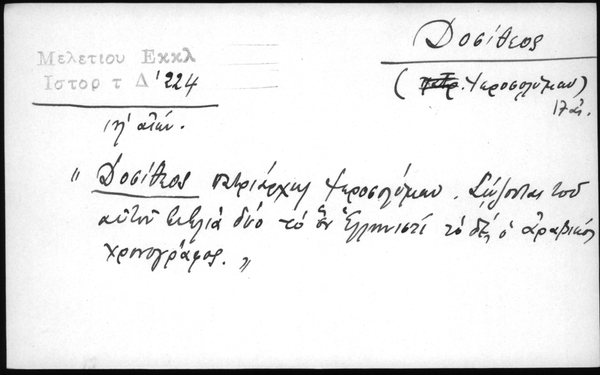 Μελετίου Εκκλ
Ιστορ τ Δ' 224
Δοσίθεος
(πατρ. Ἱεροσολύμων)
17 αἰ.
ιη' αἰών.
"Δοσίθεος πατριάρχης Ἱεροσολύμων. Σώζονται τοῦ
αὐτοῦ βιβλία δύο τὸ ἓν Ἑλληνιστί τὸ δὲ ὁ ἀραβικὸς
χρονογράφος."